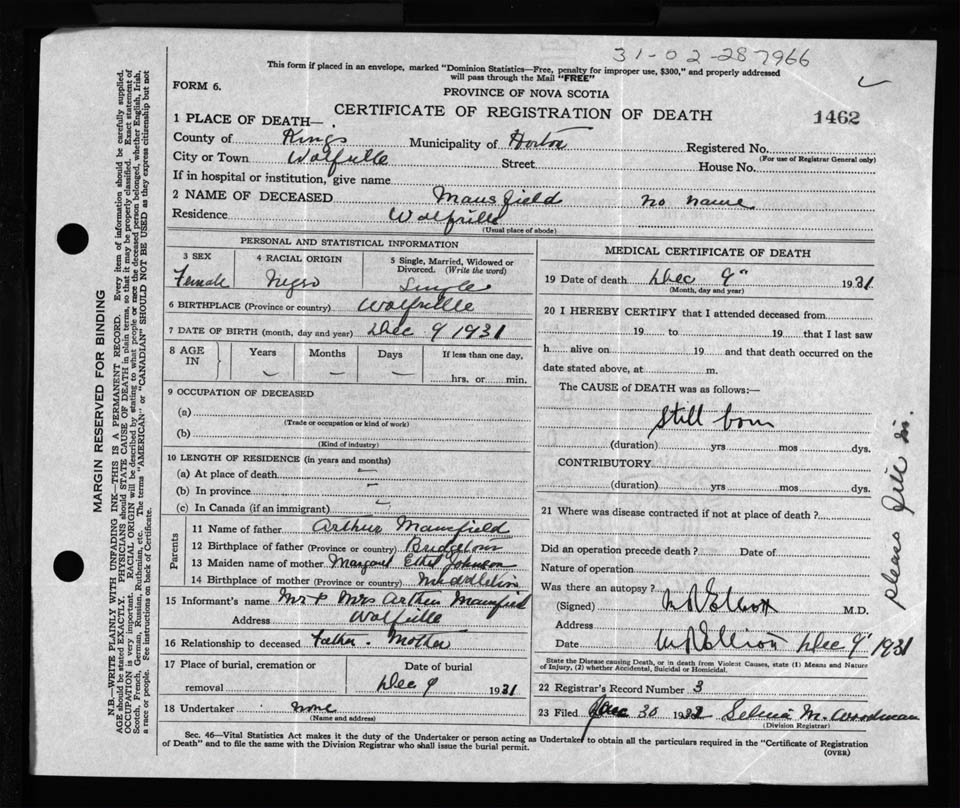 31-02-287966
This form if placed in an envelope, marked "Dominion Statistics—Free, penalty for improper use, $300," and properly addressed
will pass through the Mail "FREE"
FORM 6.
PROVINCE OF NOVA SCOTIA
CERTIFICATE OF REGISTRATION OF DEATH
1462
1 PLACE OF DEATH—
County of Kings Municipality of Horton Registered No.
(For use of Registrar General only)
City or Town Wolfville Street House No.
If in hospital or institution, give name
2 NAME OF DECEASED Mansfield no name
Residence Wolfville
(Usual place of abode)
PERSONAL AND STATISTICAL INFORMATION
3 SEX Female
4 RACIAL ORIGIN Negro
5 Single, Married, Widowed or Divorced. (Write the word) Single
6 BIRTHPLACE (Province or country) Wolfville
7 DATE OF BIRTH (month, day and year) Dec 9 1931
8 AGE IN Years Months Days If less than one day,
– – – hrs. or min.
9 OCCUPATION OF DECEASED
(a)
(Trade or occupation or kind of work)
(b)
(Kind of industry)
10 LENGTH OF RESIDENCE (in years and months)
(a) At place of death –
(b) In province –
(c) In Canada (if an immigrant)
Parents
11 Name of father Arthur Mansfield
12 Birthplace of father (Province or country) Bridgetown
13 Maiden name of mother Margaret Ethel Johnson
14 Birthplace of mother (Province or country) Middleton
15 Informant's name Mr & Mrs Arthur Mansfield
Address Wolfville
16 Relationship to deceased Father - Mother
17 Place of burial, cremation or removal
Date of burial
Dec 9 1931
18 Undertaker none
(Name and address)
MEDICAL CERTIFICATE OF DEATH
19 Date of death Dec 9" 1931
(Month, day and year)
20 I HEREBY CERTIFY that I attended deceased from
19 to 19 that I last saw
h alive on 19 and that death occurred on the
date stated above, at m.
The CAUSE of DEATH was as follows:—
Still born
(duration) yrs mos dys.
CONTRIBUTORY
(duration) yrs mos dys.
21 Where was disease contracted if not at place of death?
Did an operation precede death? Date of
Nature of operation
Was there an autopsy?
(Signed) M.D.
Address
Date Dec 9" 1931
State the Disease causing Death, or in death from Violent Causes, state (1) Means and Nature
of Injury, (2) whether Accidental, Suicidal or Homicidal.
22 Registrar's Record Number 3
23 Filed 30 1932 Selina M. Woodman
(Division Registrar)
Sec. 46—Vital Statistics Act makes it the duty of the Undertaker or person acting as Undertaker to obtain all the particulars required in the "Certificate of Registration
of Death" and to file the same with the Division Registrar who shall issue the burial permit.
(OVER)
please fill in.
MARGIN RESERVED FOR BINDING
N.B.—WRITE PLAINLY WITH UNFADING INK—THIS IS A PERMANENT RECORD. Every item of information should be carefully supplied.
AGE should be stated EXACTLY. PHYSICIANS should STATE CAUSE OF DEATH in plain terms, so that it may be properly classified. Exact statement of
OCCUPATION is very important. RACIAL ORIGIN will be described by stating to what people or race the deceased person belonged, whether English, Irish,
Scotch, French, German, Russian, Ruthenian, etc. The terms "AMERICAN" or "CANADIAN" SHOULD NOT BE USED as they express citizenship but not
a race or people. See instructions on back of Certificate.